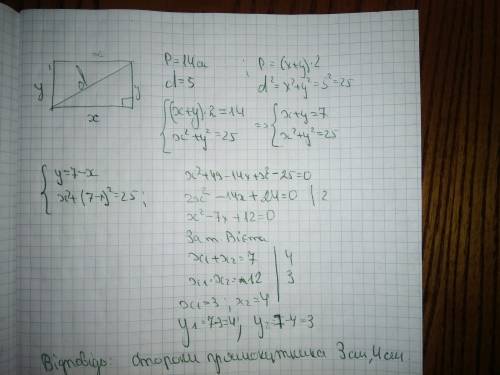 x
y d y
x
P=14см ; P=(x+y)·2
d=5 d²=x²+y²=5²=25
{(x+y)·2=14 => {x+y=7
{x²+y²=25 {x²+y²=25
{y=7-x
{x²+(7-x)²=25;
x²+49-14x+x²-25=0
2x²-14x+24=0 | 2
x²-7x+12=0
За т. Вієта
x₁+x₂=7 | 4
x₁·x₂=12 | 3
x₁=3; x₂=4
y₁=7-3=4; y₂=7-4=3
Відповідь: сторони прямокутника 3см, 4см